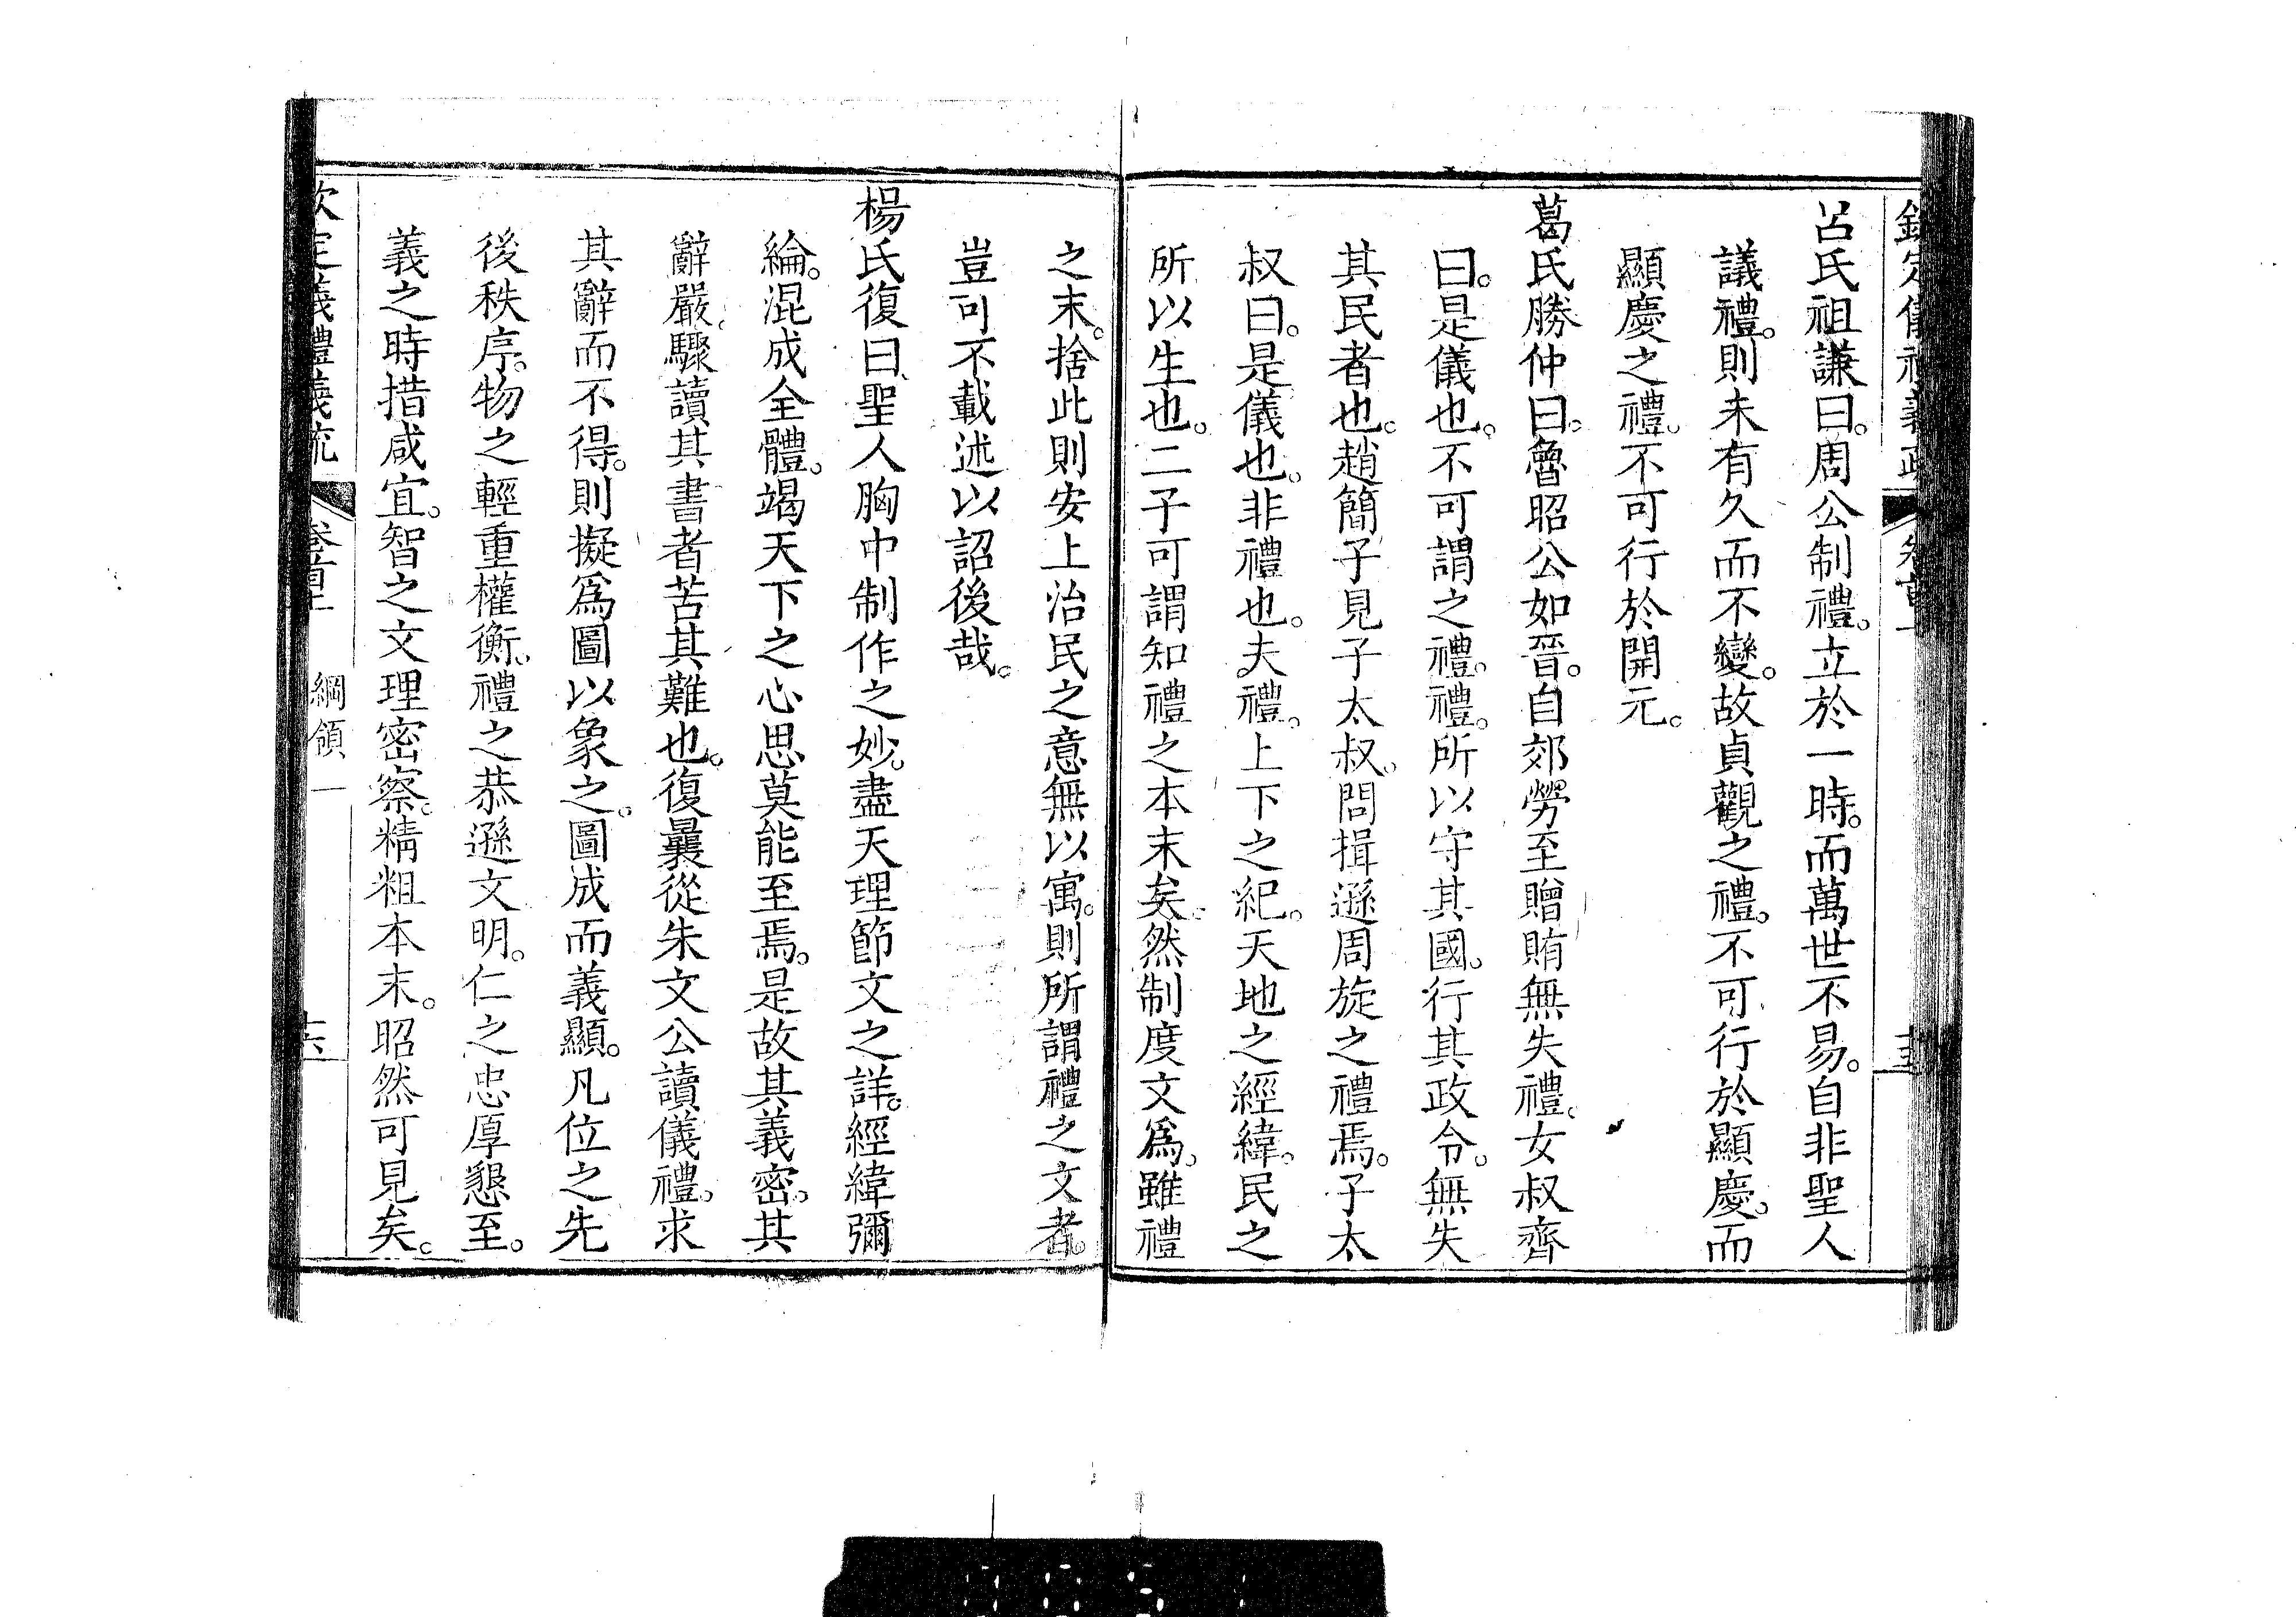 呂氏祖謙曰。周公制禮。立於一時。而萬世不易。自非聖人
議禮。則未有久而不變。故貞觀之禮。不可行於顯慶。而
顯慶之禮。不可行於開元。
葛氏勝仲曰。魯昭公如晉。自郊勞至贈賄無失禮。女叔齊
曰。是儀也。不可謂之禮。禮。所以守其國。行其政令。無失
其民者也。趙簡子見子太叔。問揖遜周旋之禮焉。子太
叔曰。是儀也。非禮也。夫禮。上下之紀。天地之經緯。民之
所以生也。二子可謂知禮之本末矣。然制度文爲。雖禮
之末。捨此則安上治民之意無以寓。則所謂禮之文者。
豈可不載述以詔後哉。
楊氏復曰。聖人胸中制作之妙。盡天理節文之詳。經緯彌
綸。混成全體。竭天下之心思莫能至焉。是故其義密。其
辭嚴。驟讀其書者苦其難也。復曩從朱文公讀儀禮。求
其辭而不得。則擬爲圖以象之。圖成而義顯。凡位之先
後秩序。物之輕重權衡。禮之恭遜文明。仁之忠厚懇至。
義之時措咸宜。智之文理密察。精粗本末。昭然可見矣。
欽定義禮義疏 卷首上 綱領一